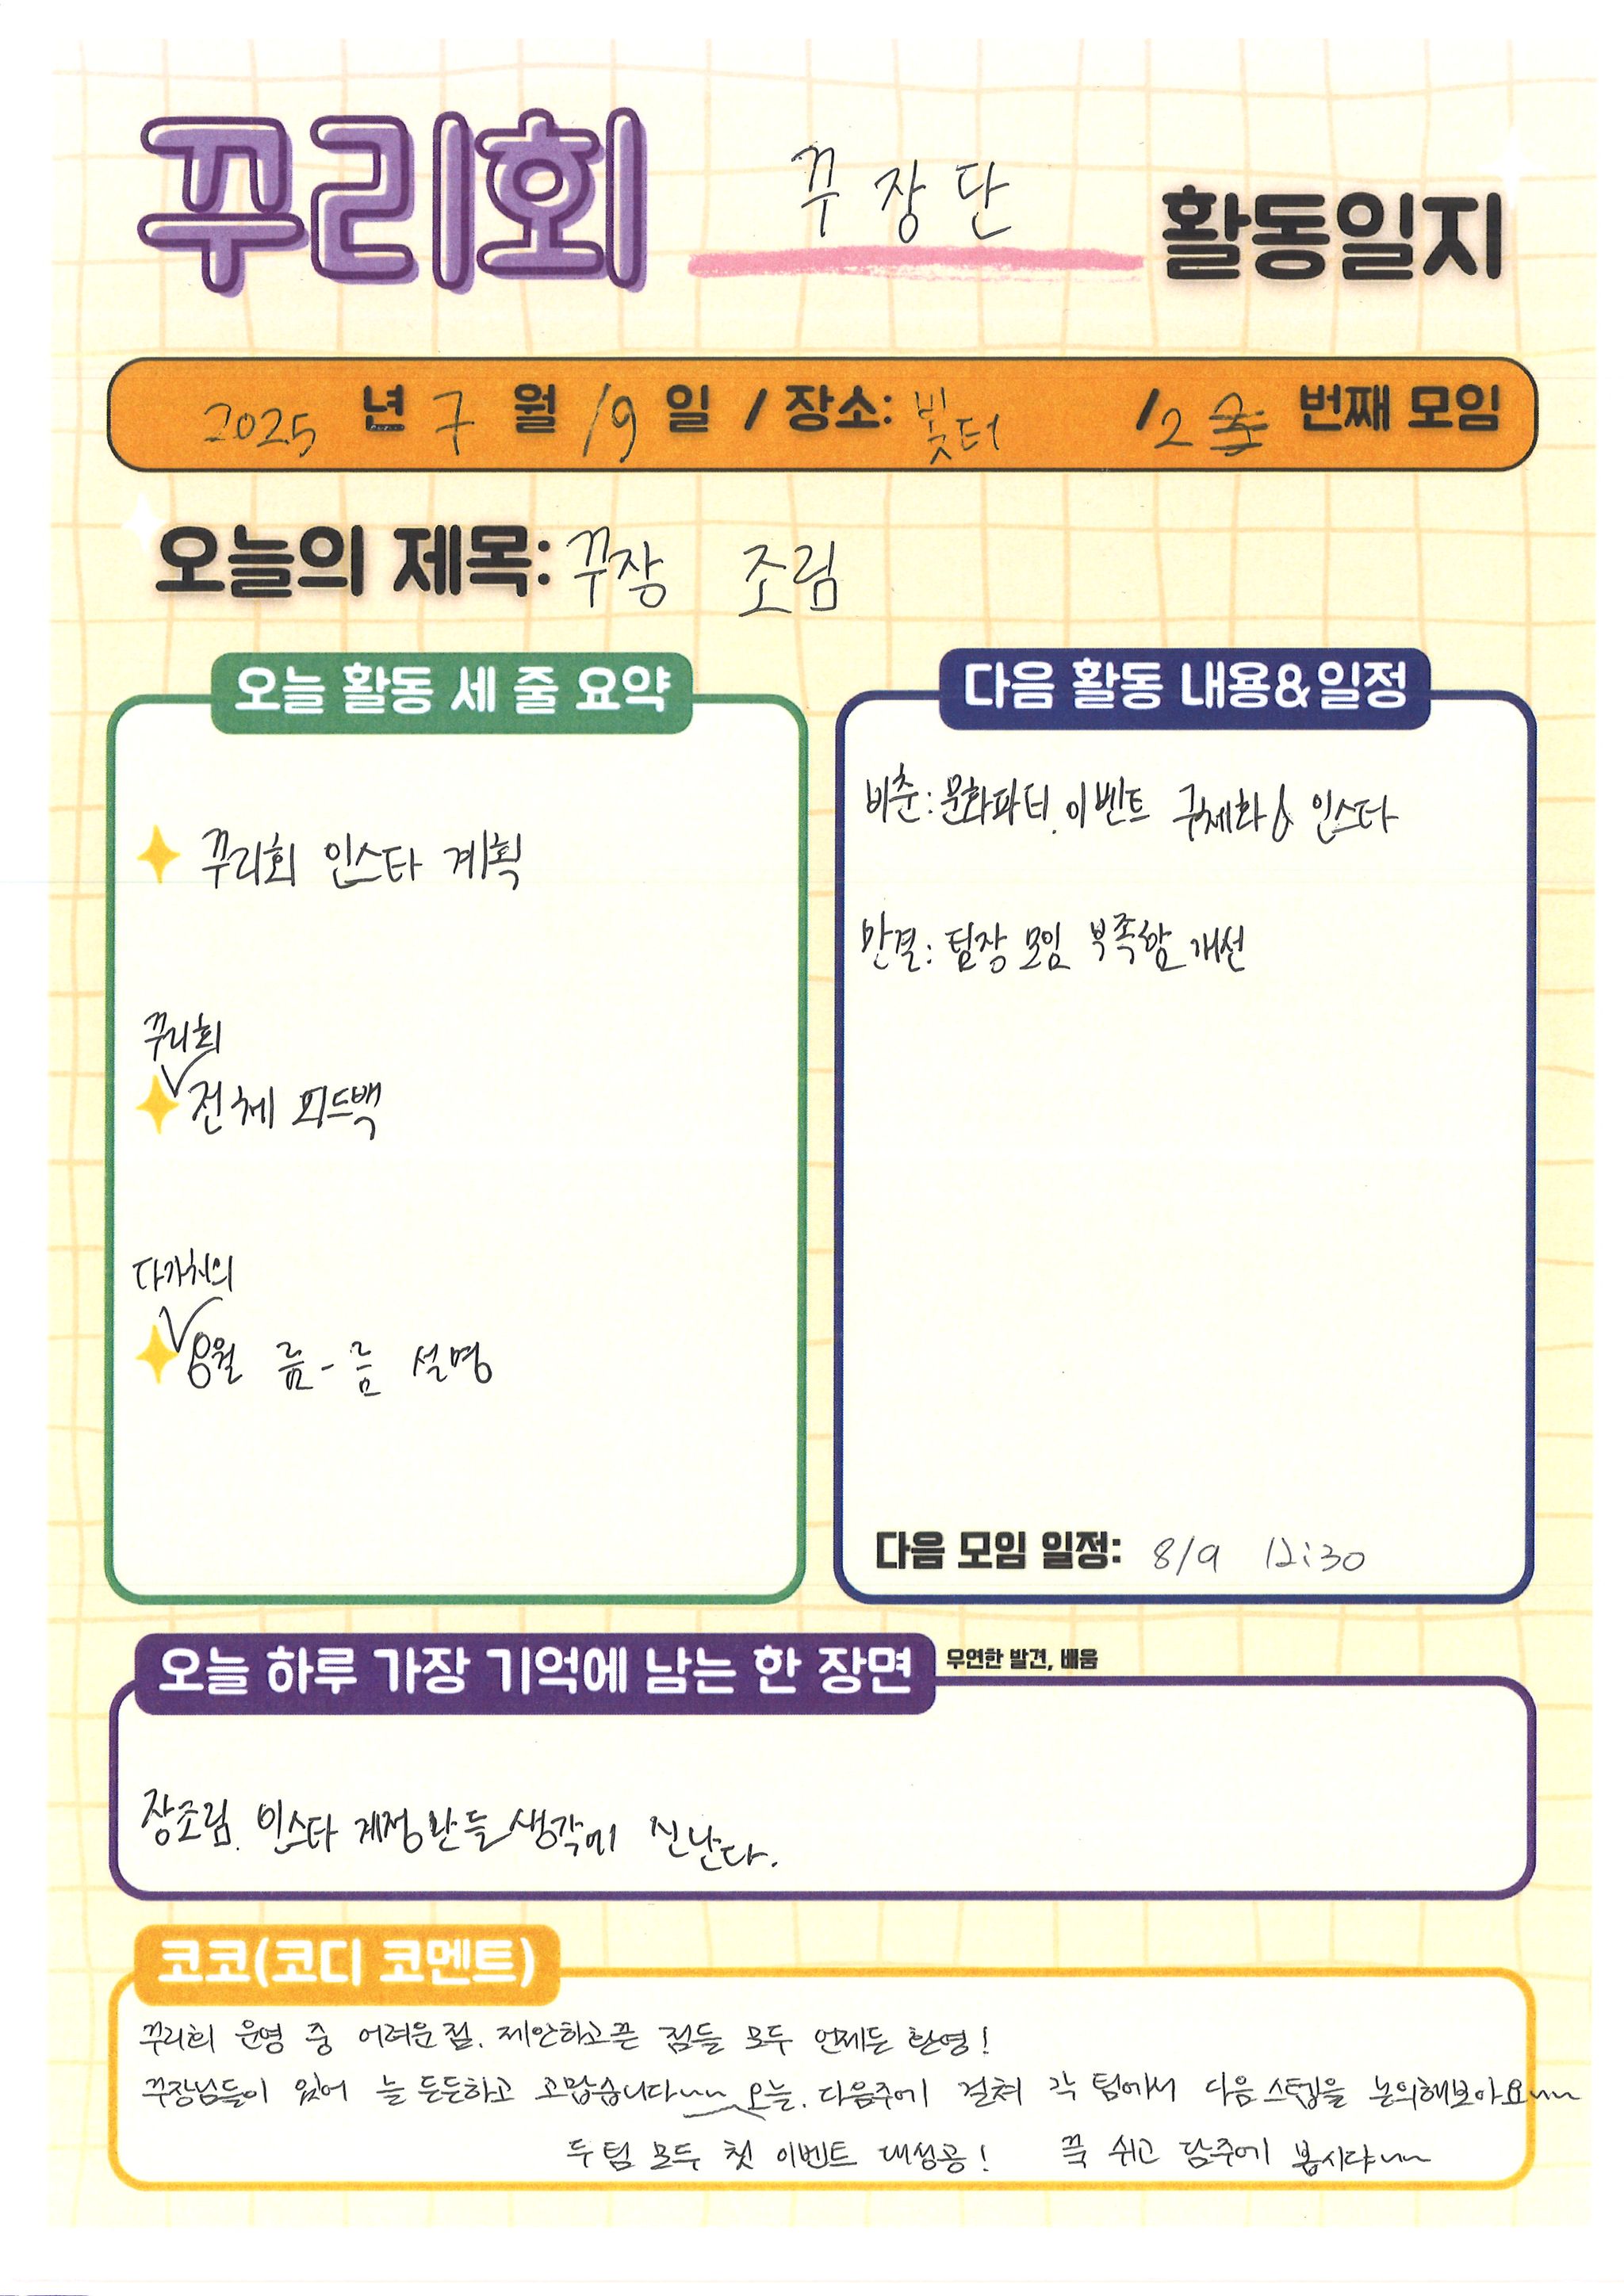 꾸리회 꾸장단 활동일지
2025 년 7 월 19 일 / 장소: 빛터 / 2 번째 모임
오늘의 제목: 꾸장 조림
오늘 활동 세 줄 요약
꾸리회 인스타 계획
꾸리회
전체 피드백
다가치의
8월 름-름 설명
다음 활동 내용&일정
비춘: 문화파티, 이벤트 구체화 & 인스타
만결: 팀장 모임 부족함 개선
다음 모임 일정: 8/9 12:30
오늘 하루 가장 기억에 남는 한 장면 우연한 발견, 배움
장조림. 인스타 계정 만들 생각에 신난다.
코코(코디 코멘트)
꾸리회 운영 중 어려운 점, 제안하고픈 점들 모두 언제든 환영!
꾸장님들이 있어 늘 든든하고 고맙습니다~~ 오늘, 다음주에 걸쳐 각 팀에서 다음 스텝을 논의해보아요~~
두 팀 모두 첫 이벤트 대성공! 푹 쉬고 담주에 봅시다~~